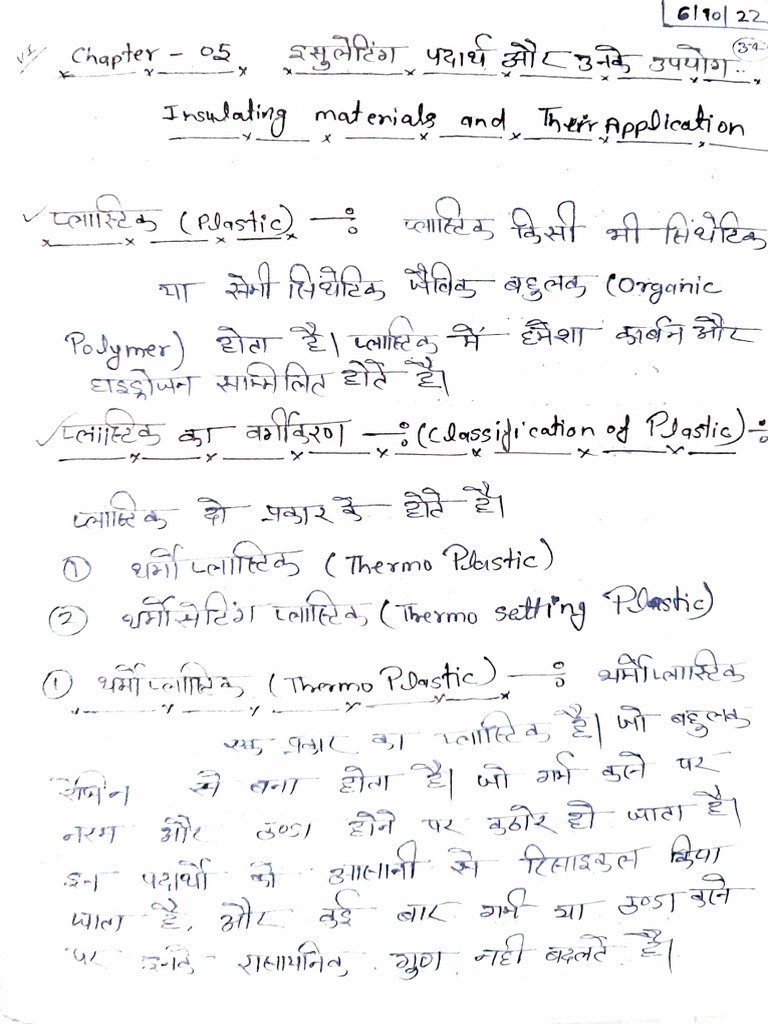 6/10/22
Chapter - 05 इंसुलेटिंग पदार्थ और उनके उपयोग..
Insulating materials and Their Application
प्लास्टिक (Plastic) —: प्लास्टिक किसी भी सिंथेटिक
या सेमी सिंथेटिक जैविक बहुलक (Organic
Polymer) होता है। प्लास्टिक में हमेशा कार्बन और
हाइड्रोजन सम्मिलित होते है।
प्लास्टिक का वर्गीकरण —: (Classification of Plastic) -:
प्लास्टिक दो प्रकार के होते है।
① थर्मो प्लास्टिक (Thermo Plastic)
② थर्मोसेटिंग प्लास्टिक (Thermo setting Plastic)
① थर्मो प्लास्टिक (Thermo Plastic) —: थर्मोप्लास्टिक
एक प्रकार का प्लास्टिक है। जो बहुलक
रेजिन से बना होता है। जो गर्म करने पर
नरम और ठण्डा होने पर कठोर हो जाता है।
इन पदार्थो को आसानी से रिसाइकल किया
जाता है, और कई बार गर्म या ठण्डा करने
पर इनके रासायनिक गुण नही बदलते है।